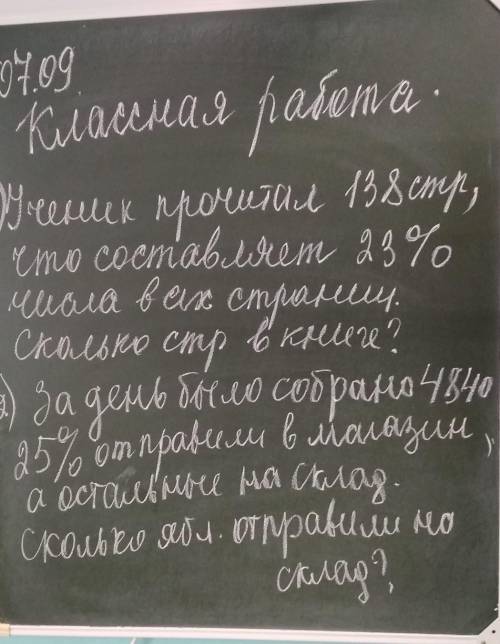 07.09.
Классная работа.
) Ученик прочитал 138 стр,
что составляет 23%
числа всех страниц.
Сколько стр в книге?
2) За день было собрано 4840
25% отправили в магазин,
а остальные на склад.
Сколько ябл. отправили на
склад?